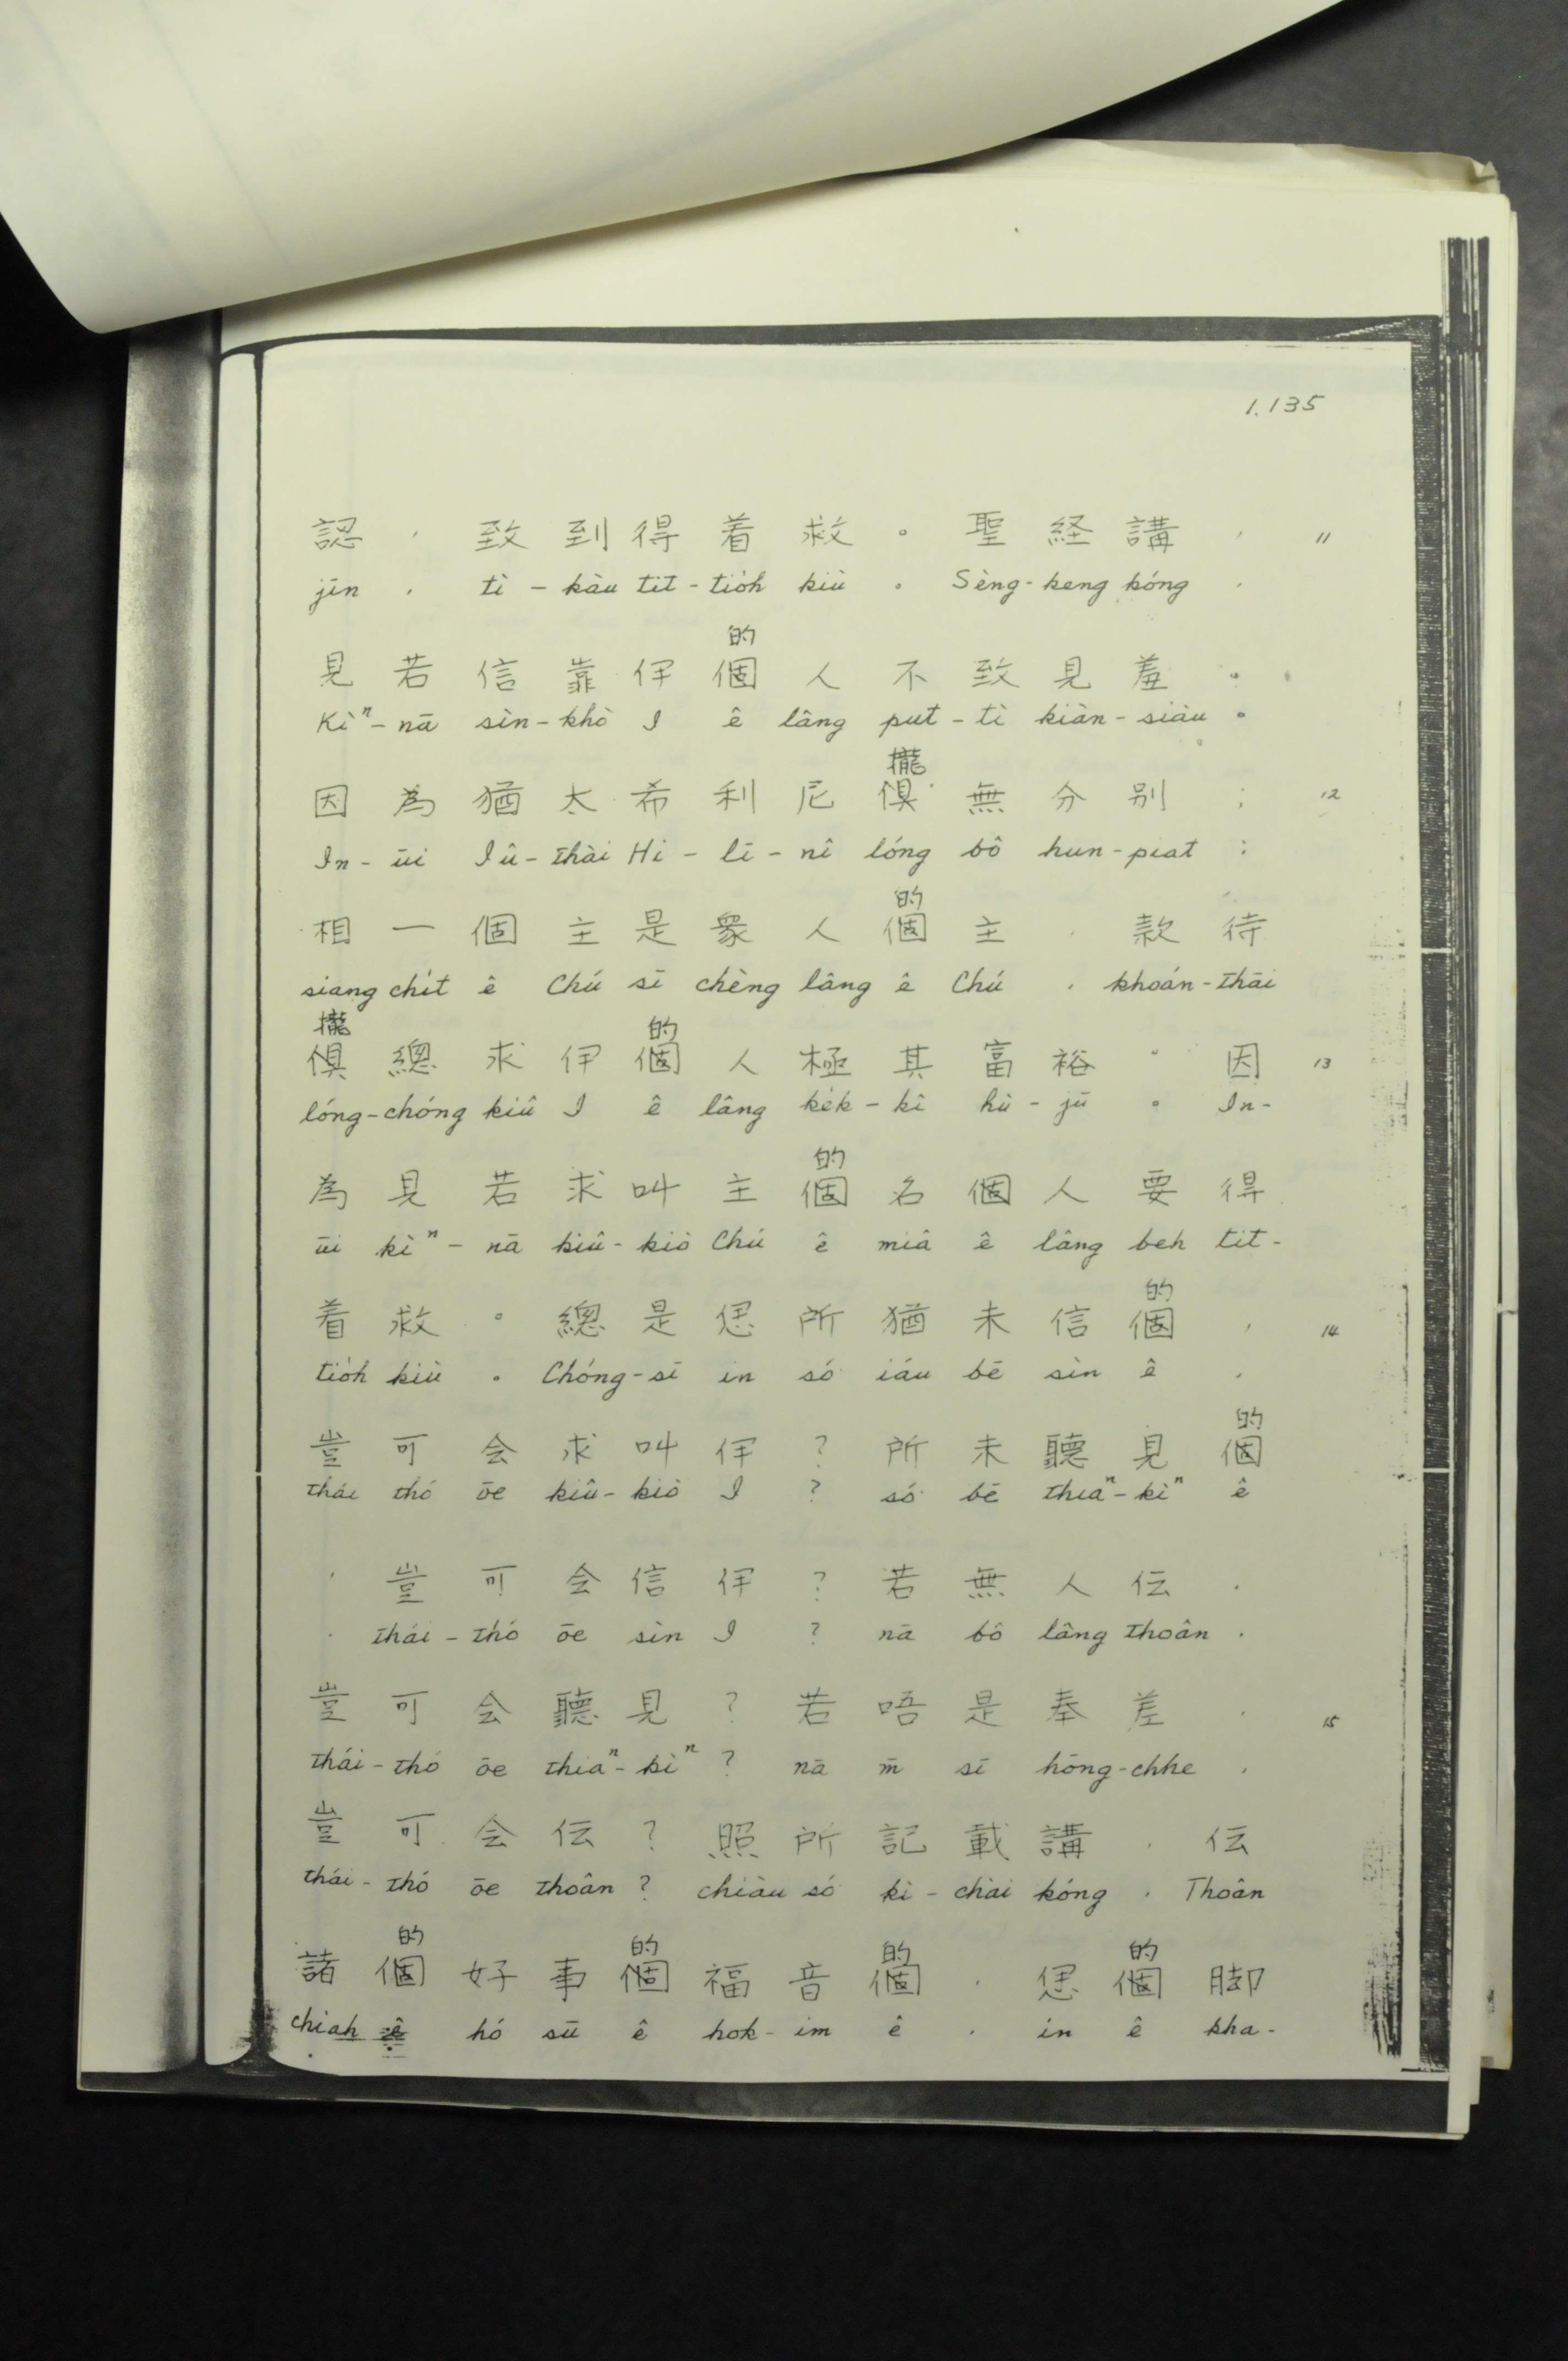 1.135
認 , 致 到 得 着 救 。 聖 経 講 , 11
jīn , tì - kàu tit - tio̍h kiù 。 Sèng - keng kóng .
的
見 若 信 靠 伊 個 人 不 致 見 羞 。
Kìⁿ - nā sìn - khò I ê lâng put - tì kiàn - siàu 。
攏
因 為 猶 太 希 利 尼 俱 無 分 別 ; 12
In - ūi Iû - thài Hi - lī - nî lóng bô hun - piat :
的
相 一 個 主 是 眾 人 個 主 . 款 待
siang chi̍t ê Chú sī chèng lâng ê Chú , khoán - thāi
攏 的
俱 總 求 伊 個 人 極 其 富 裕 。 因 13
lóng - chóng kiû I ê lâng ke̍k - kî hù - jū 。 In -
的
為 見 若 求 叫 主 個 名 個 人 要 得
ūi kìⁿ - nā kiû - kiò Chú ê miâ ê lâng beh tit -
的
着 救 。 總 是 𪜶 所 猶 未 信 個 , 14
tio̍h kiù 。 Chóng - sī in só iáu bē sìn ê ,
的
豈 可 会 求 叫 伊 ? 所 未 聽 見 個
thái thó ōe kiû - kiò I ? só bē thiaⁿ - kìⁿ ê
, 豈 可 会 信 伊 ? 若 無 人 伝 .
. thái - thó ōe sìn I ? nā bô lâng thoân .
豈 可 会 聽 見 ? 若 唔 是 奉 差 . 15
thái - thó ōe thiaⁿ - kìⁿ ? nā m̄ sī hōng - chhe ,
豈 可 会 伝 ? 照 所 記 載 講 . 伝
thái - thó ōe thoân ? chiàu só kì - chài kóng . Thoân
的 的 的 的
諸 個 好 事 個 福 音 個 . 𪜶 個 脚
chiah ê hó sū ê hok - im ê . in ê kha -